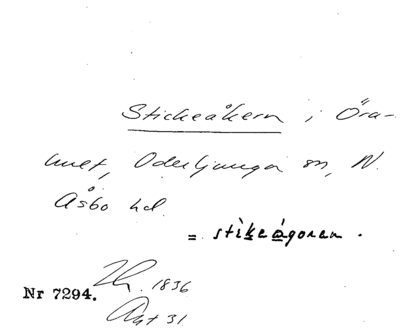 Stickeåkern i Öra-
mult, Oderljunga sn, N.
Åsbo hd.
= stikeågoran.
Nr 7294.
1836
31